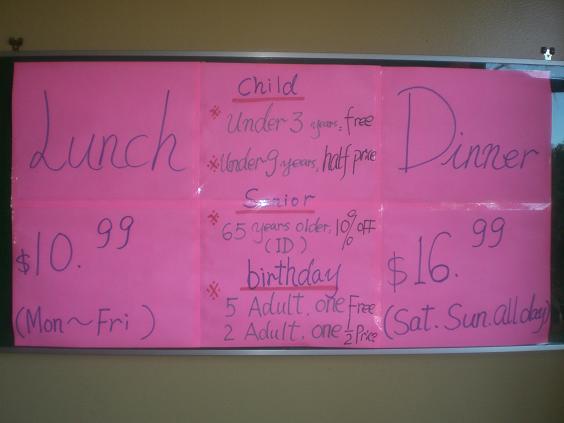 Lunch
$10.99
(Mon~Fri)
Child
※Under 3 years, free
※Under 9 years, half price
Senior
※65 years older, 10% off
(ID)
birthday
※5 Adult, one Free
2 Adult, one 1/2 Price
Dinner
$16.99
(Sat. Sun. all day)